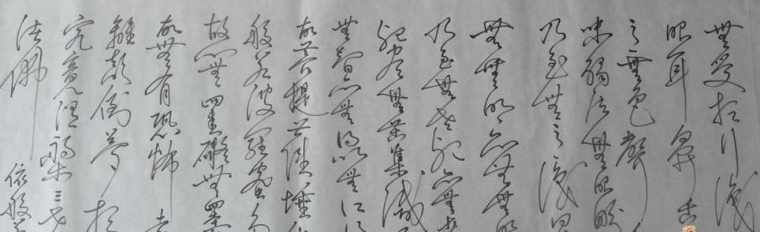 無受想行識
眼耳鼻舌
意無色聲
味觸法無眼界
乃至無意識界
無無明亦無無明
乃至無老死亦無老
死盡無苦集滅
無智亦無得以無所
故菩提薩埵依
般若波羅蜜多
故心無罣礙無罣
故無有恐怖遠
離顛倒夢想
究竟涅槃三世
諸佛依般